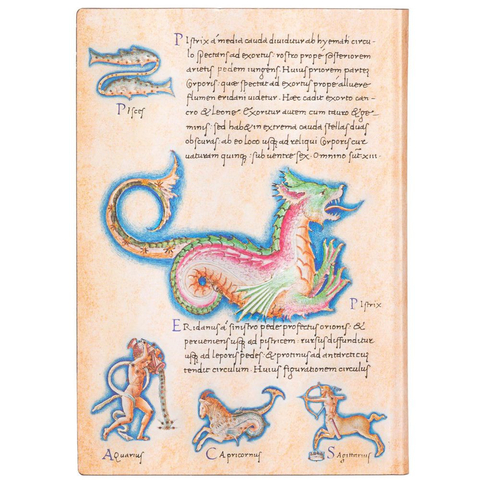 PIstrix á media cauda diuiditur ab hyemali circu
lo spectans ad exortus: rostro prope posteriorem
arietis pedem iungens. Huius priorem partem
Corporis: quæ spectat ad exortus prope alluere
flumen eridani uidetur. Hæc cadit exorto can-
cro & Leone. Exoritur autem cum tauro & ge-
minis: sed habet in extrema cauda stellas duas
obscuras: ab eo loco usque ad reliqui Corporis cur
uaturam quinque: sub uentre sex. Omnino sunt xiii.
PIsces
PIstrix
ERidanus á sinistro pede profectus orionis: &
perueniens usque ad pistricem: rursus diffunditur
usque ad leporis pedes: & protinus ad antarcticum
tendit circulum. Huius figurationem circulus
AQuarius
CApricornus
SAgittarius